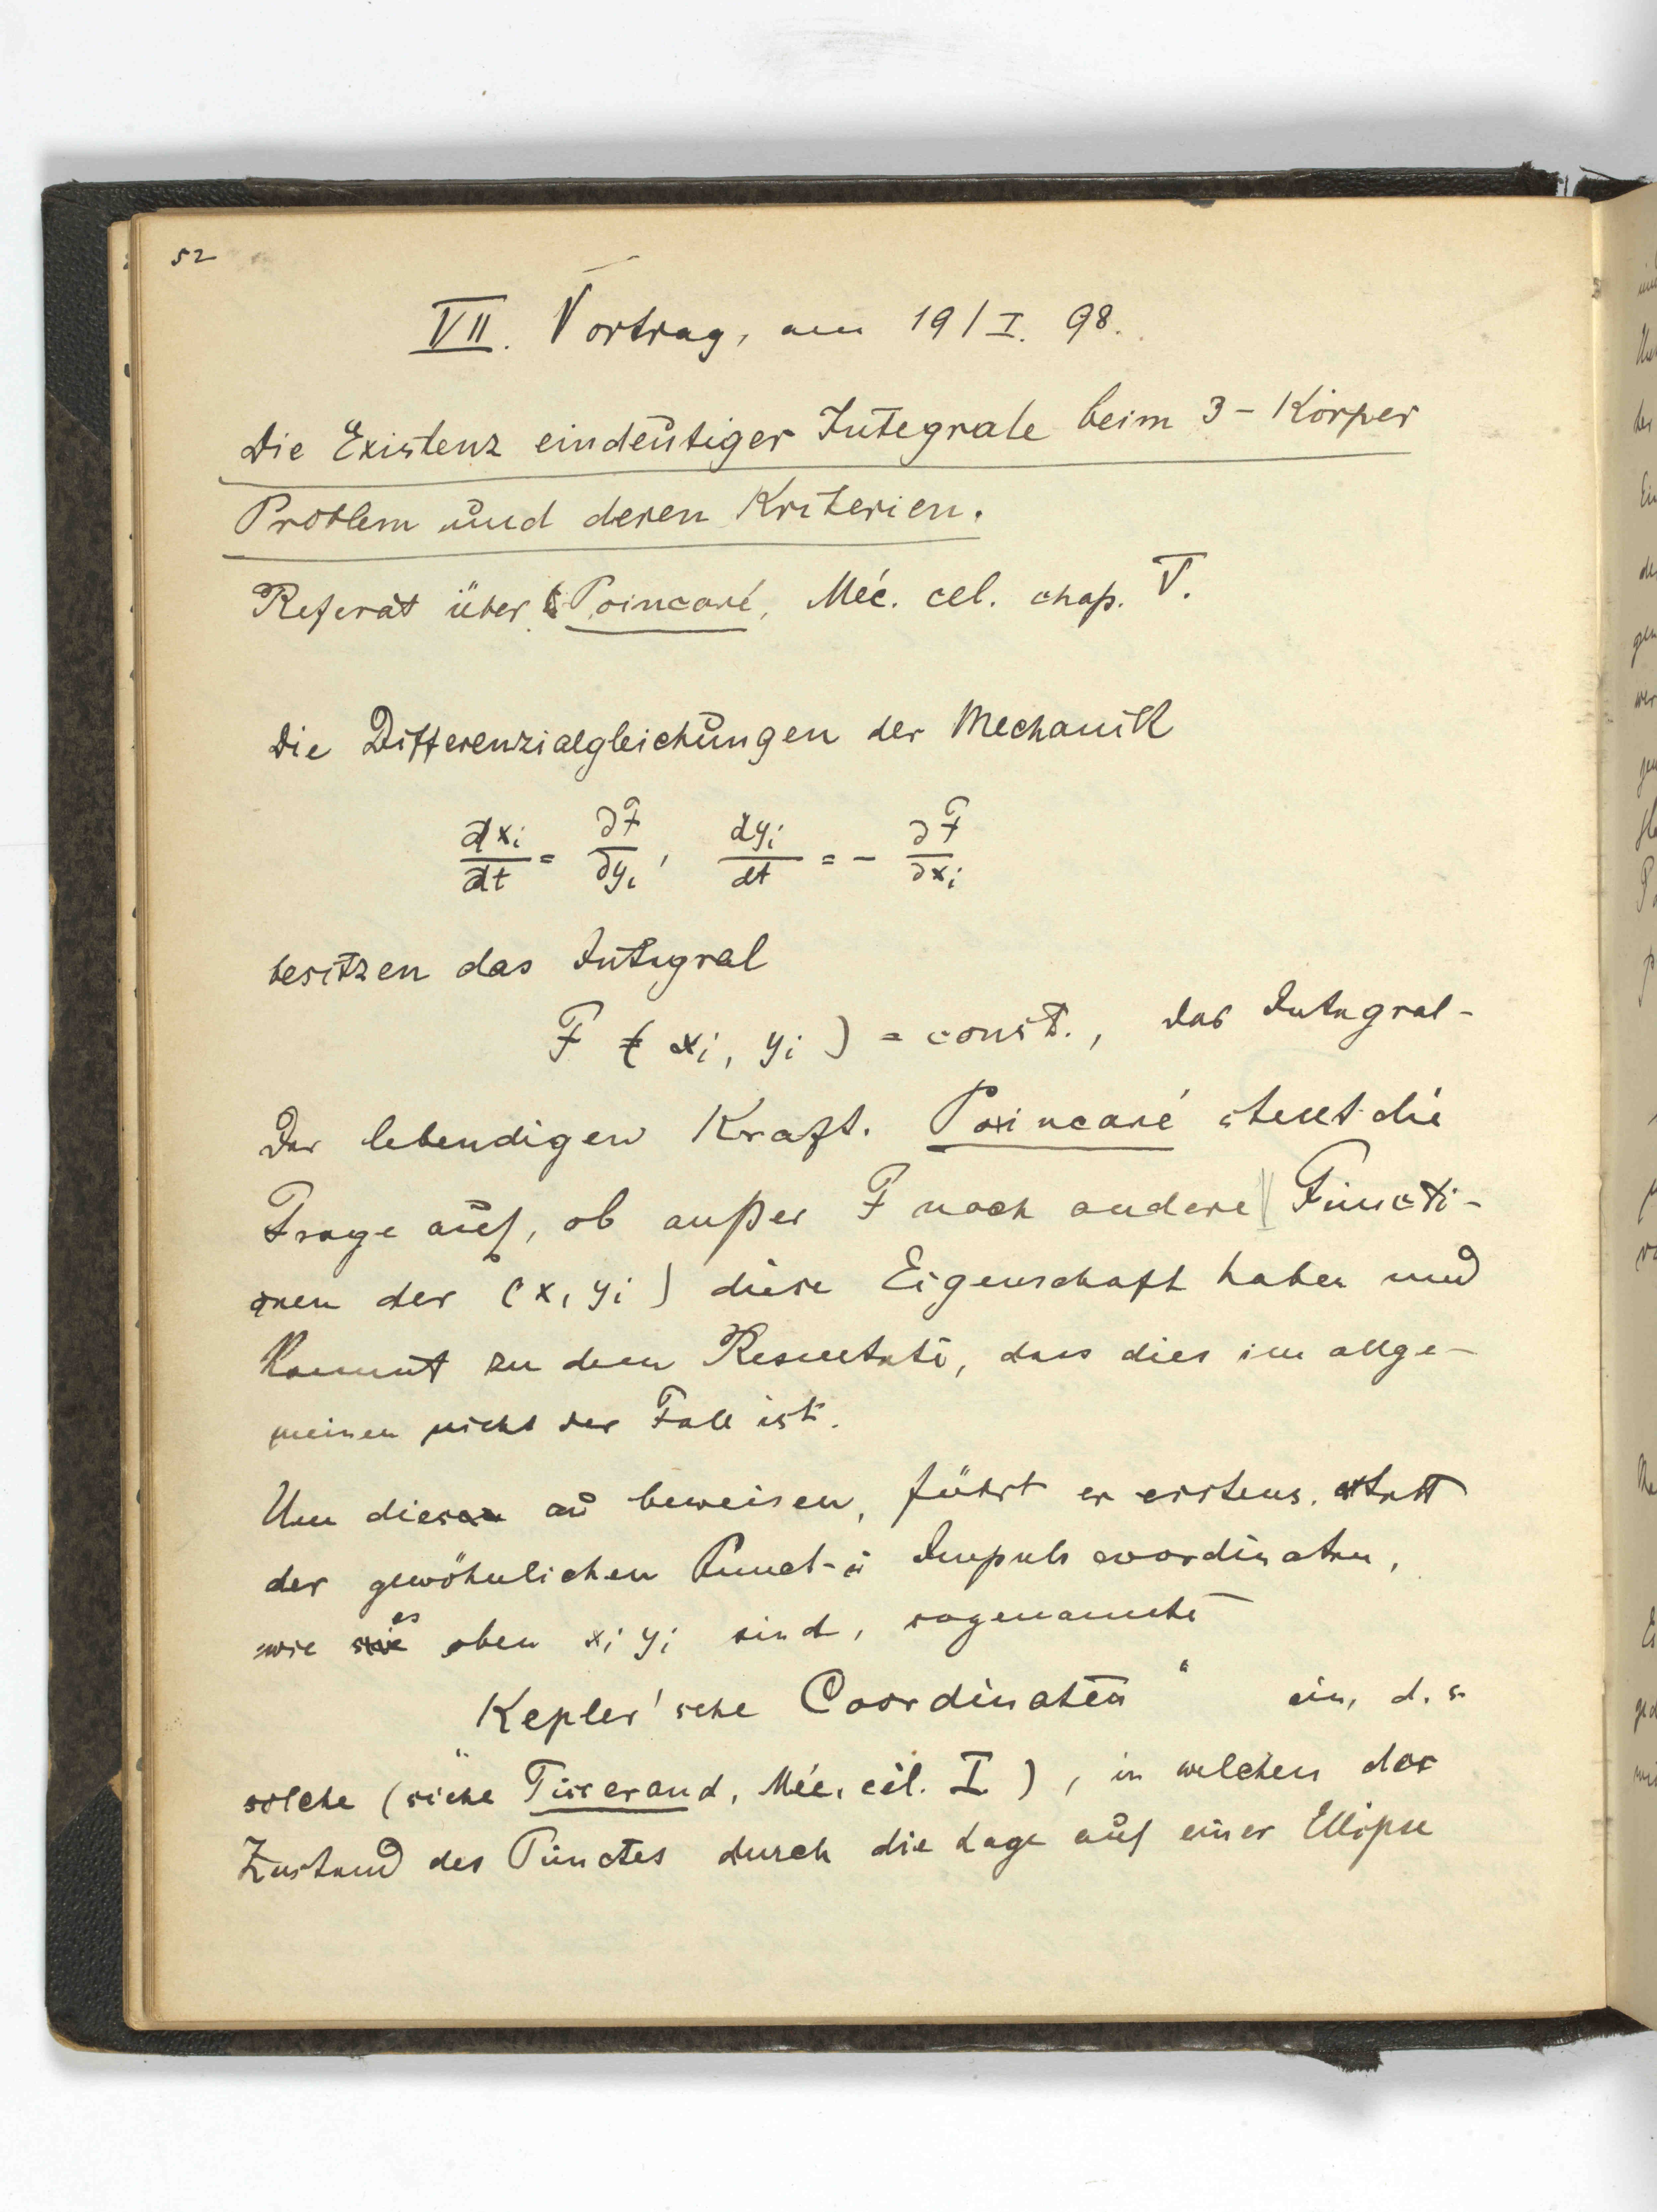 52
VII. Vortrag, am 19/I. 98.
Die Existenz eindeutiger Integrale beim 3-Körper
Problem und deren Kriterien.
Referat über Poincaré, Méc. cel. chap. V.
Die Differenzialgleichungen der Mechanik
dxi/dt = ∂F/∂yi, dyi/dt = - ∂F/∂xi
besitzen das Integral
F (xi, yi) = const., das Integral-
der lebendigen Kraft. Poincaré stellt die
Frage auf, ob außer F noch andere Functi-
onen der (xi yi) diese Eigenschaft haben und
kommt zu dem Resultate, dass dies im allge-
meinen nicht der Fall ist.
Um dieses zu beweisen, führt er erstens, statt
der gewöhnlichen Punct- u Impulscoordinaten,
wie es oben xi yi sind, sogenannte
„Kepler'sche Coordinaten“ ein, d. s.
solche (siehe Tisserand, Méc. cél. I), in welchen der
Zustand des Punctes durch die Lage auf einer Ellipse